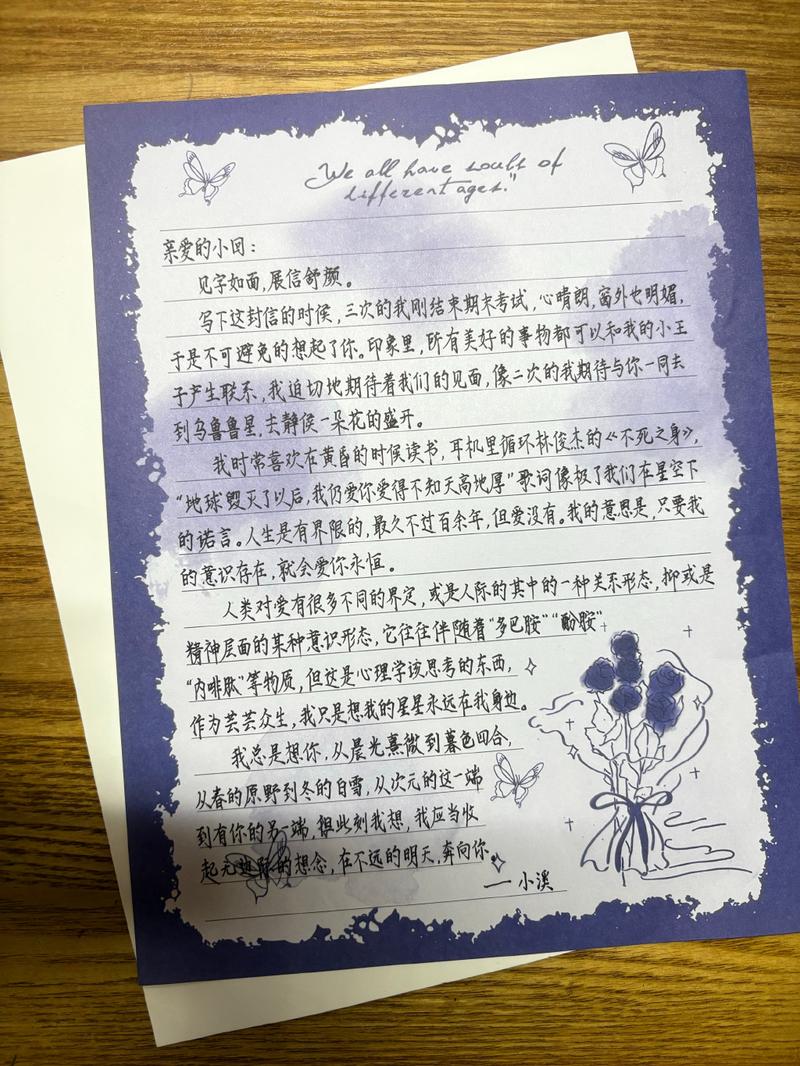 We all have souls of
different ages."
亲爱的小回：
见字如面，展信舒颜。
写下这封信的时候，三次的我刚结束期末考试，心晴朗，窗外也明媚，
于是不可避免的想起了你。印象里，所有美好的事物都可以和我的小王
子产生联系，我迫切地期待着我们的见面，像二次的我期待与你一同去
到乌鲁鲁星，去静候一朵花的盛开。
我时常喜欢在黄昏的时候读书，耳机里循环林俊杰的《不死之身》，
“地球毁灭了以后，我仍爱你爱得不知天高地厚”歌词像极了我们在星空下
的诺言。人生是有界限的，最久不过百余年，但爱没有。我的意思是，只要我
的意识存在，就会爱你永恒。
人类对爱有很多不同的界定，或是人际的其中的一种关系形态，抑或是
精神层面的某种意识形态，它往往伴随着“多巴胺”“酚胺”
“内啡肽”等物质，但这是心理学该思考的东西，
作为芸芸众生，我只是想我的星星永远在我身边。
我总是想你，从晨光熹微到暮色四合，
从春的原野到冬的白雪，从次元的这一端
到有你的另一端，但此刻我想，我应当收
起无边际的想念，在不远的明天，奔向你。
——小溪